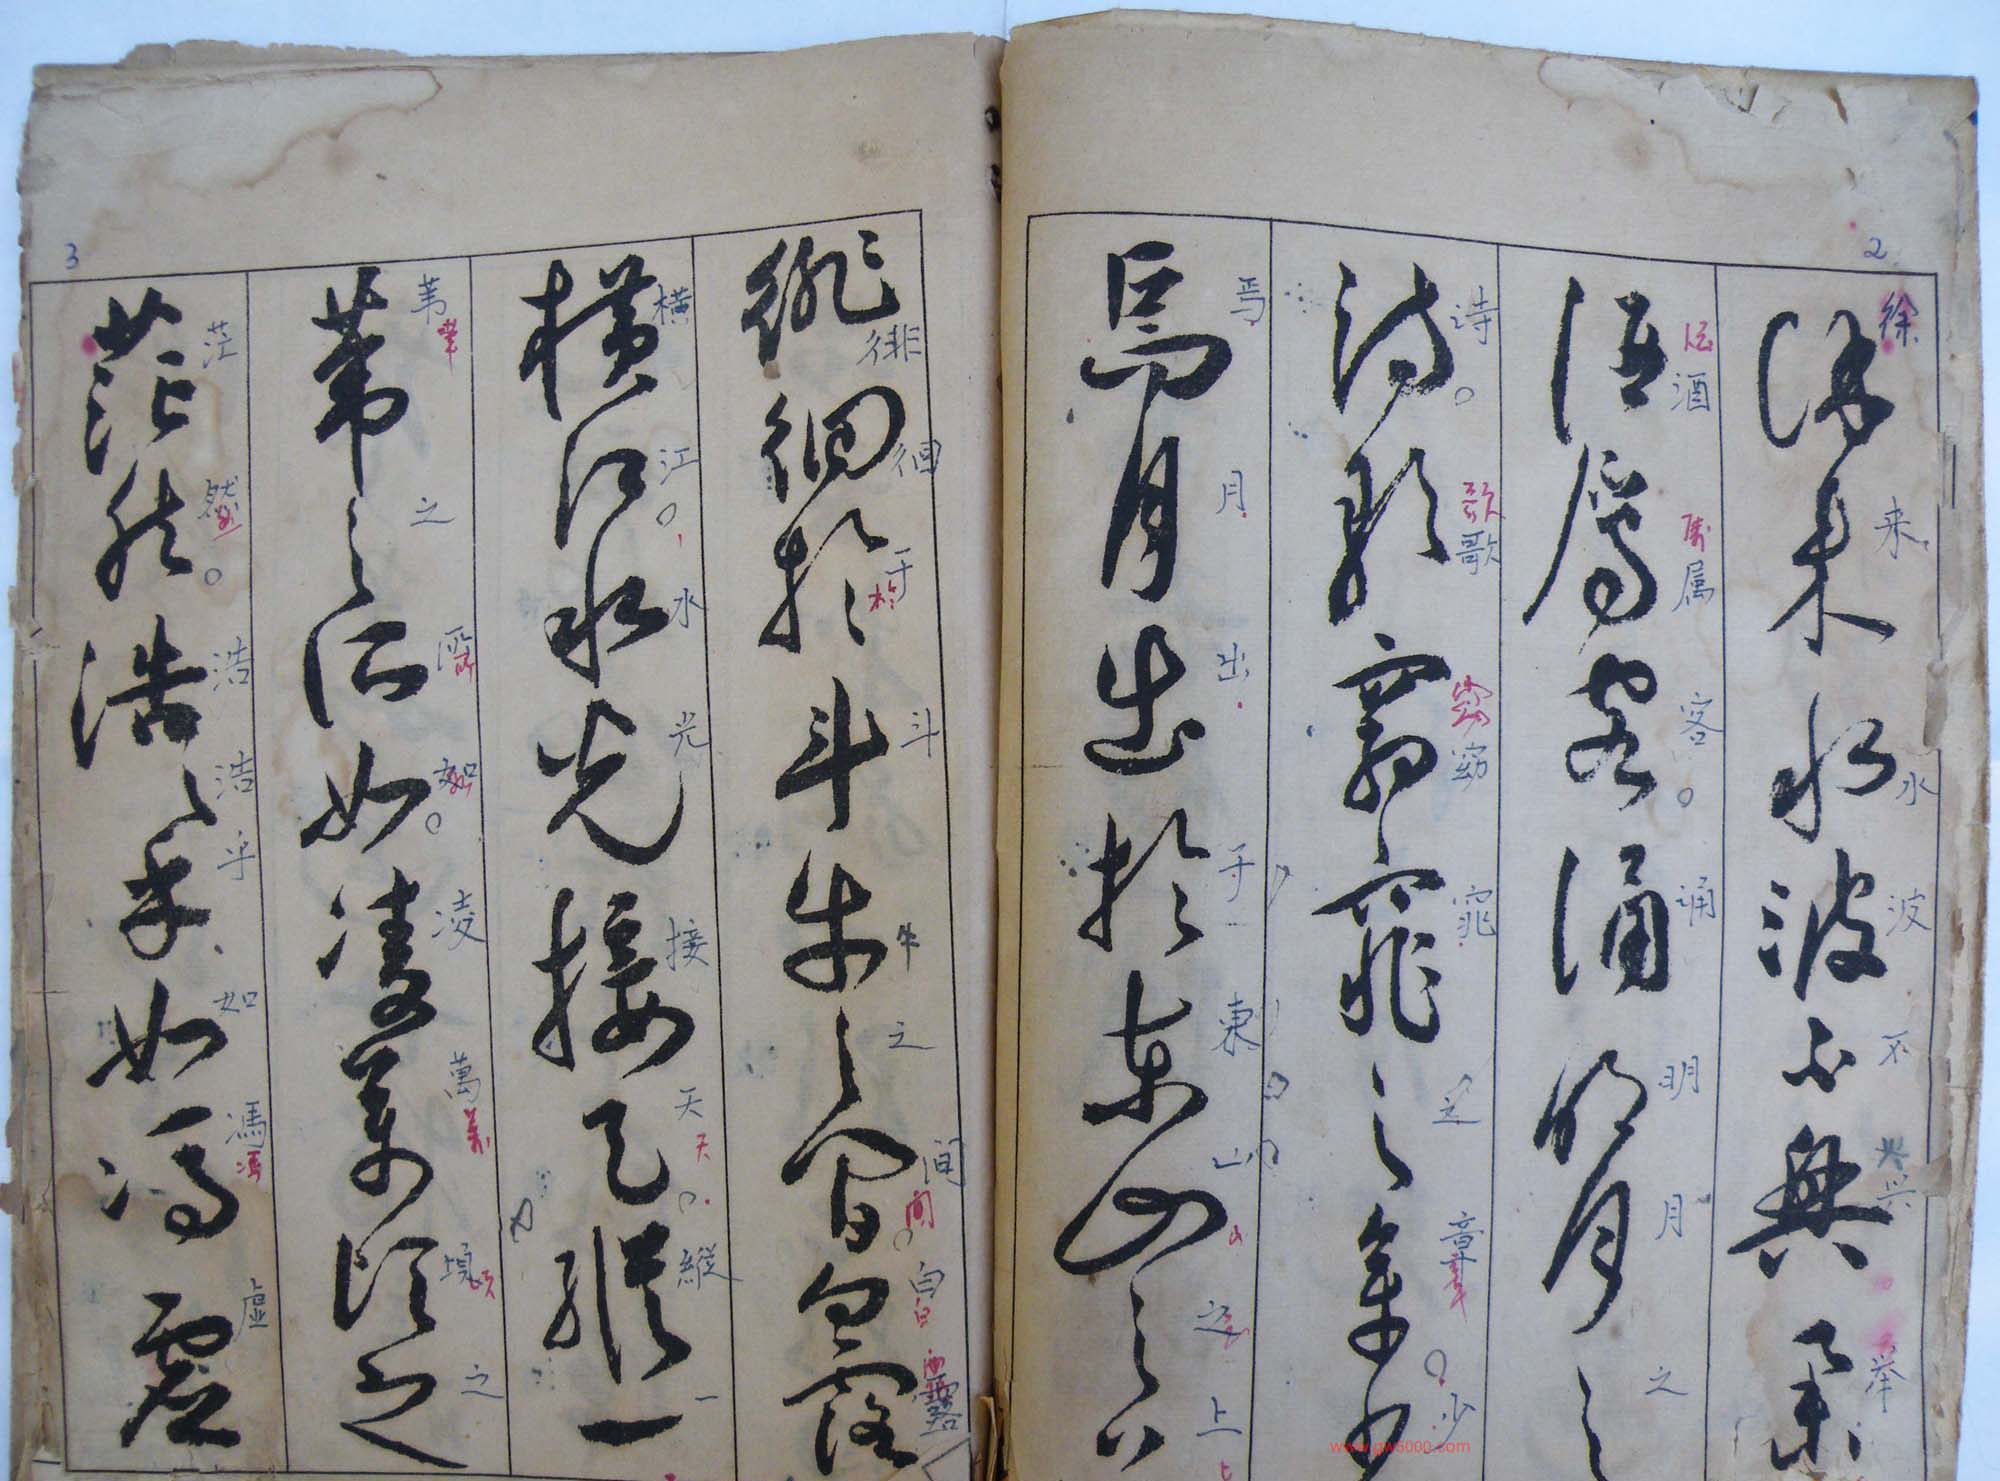 2
徐来水波不興举
酒属客誦明月之
詩歌窈窕之章少
焉月出於東山之上
徘徊於斗牛之間白露
横江水光接天縱一
葦之所如凌萬頃之
茫然浩〻乎如馮虛
3
徐 来 水 波 不 兴 举
酒 属 客。 诵 明 月 之
诗。 歌 歌 窈 窕 之 章。 少
焉 月 出 于 東 山 之 上
徘 徊 于 於 斗 牛 之 间 間。 白 白 露
横 江。 水 光 接 天 天。 縱 一
苇 之 所 如。 凌 萬 頃 之
茫 然。 浩 浩 乎 如 馮 虚
www.gw5000.com